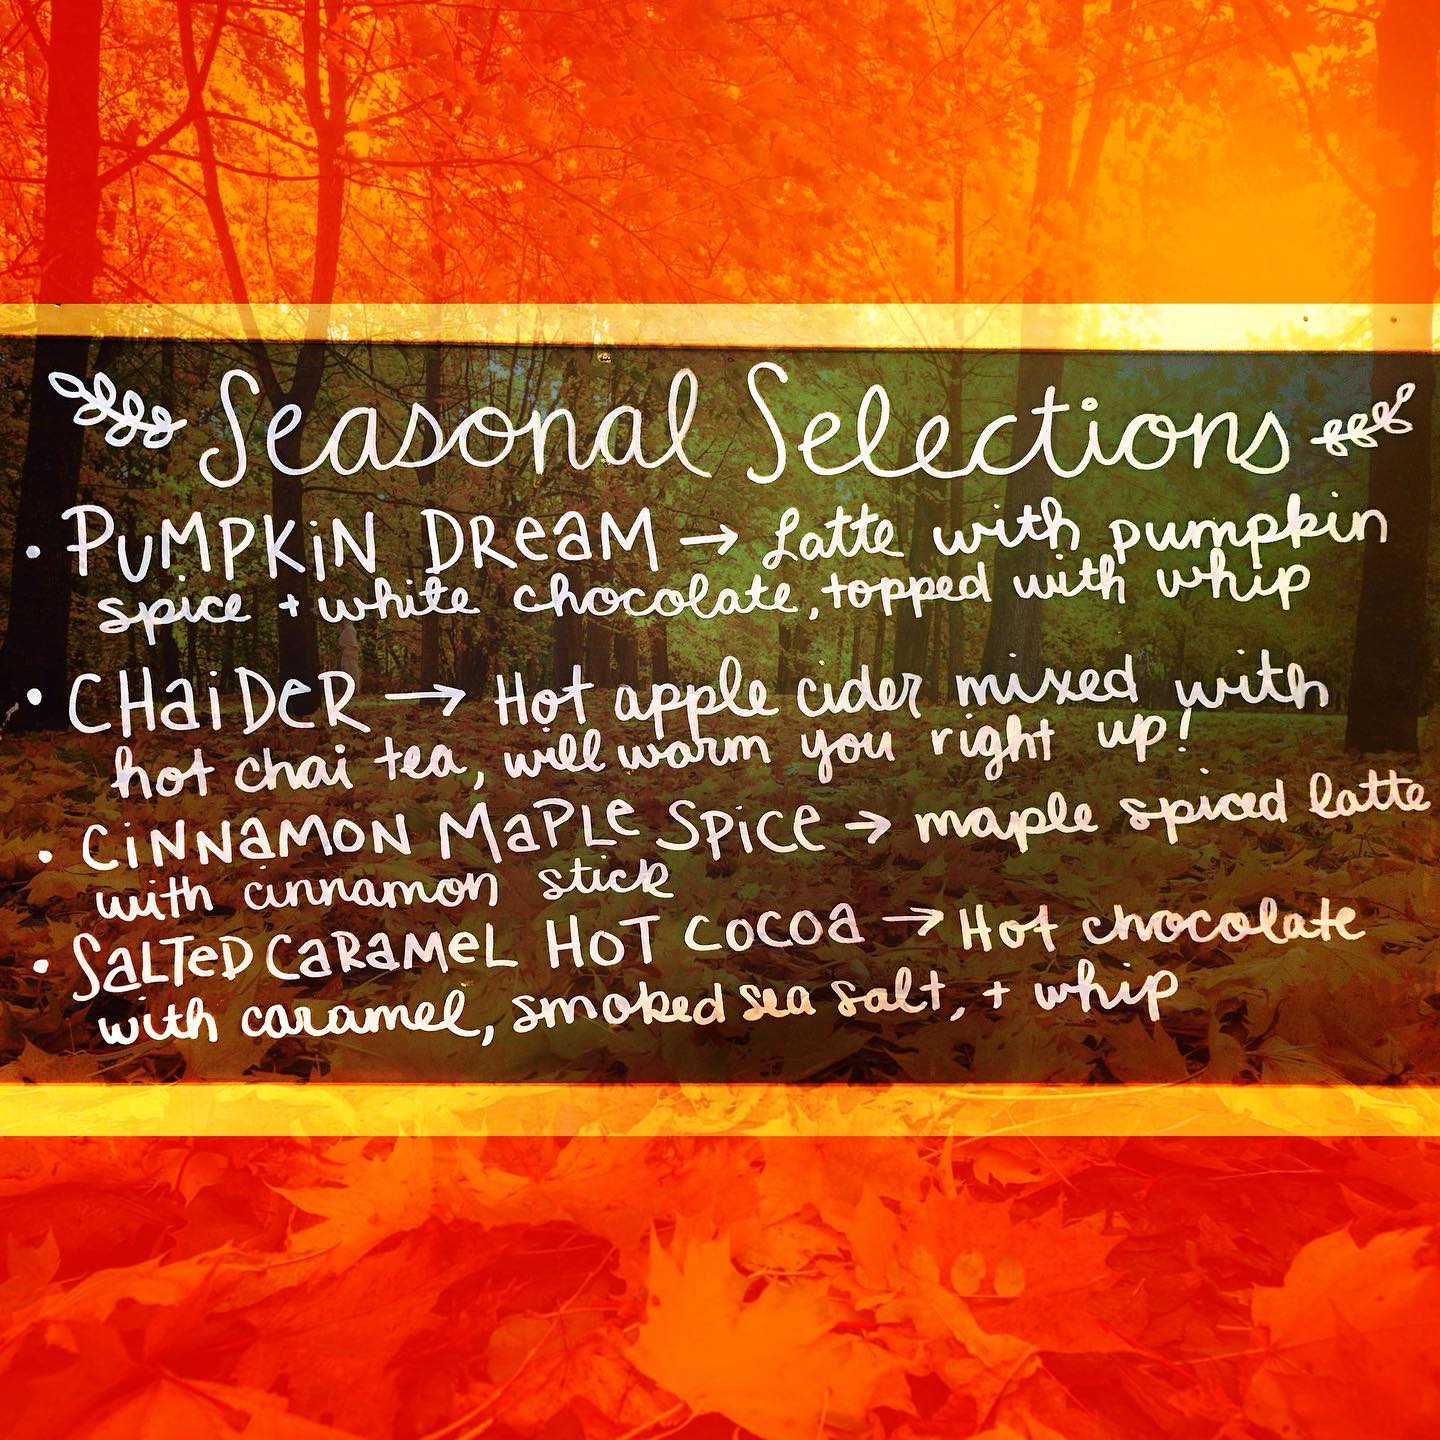 Seasonal Selections
• PUMPKiN DReaM → Latte with pumpkin
spice + white chocolate, topped with whip
• CHaiDeR → Hot apple cider mixed with
hot chai tea, will warm you right up!
• CiNNaMON MaPLe SPiCe → maple spiced latte
with cinnamon stick
• SaLTeD CaRaMeL HOT COCOa → Hot chocolate
with caramel, smoked sea salt, + whip